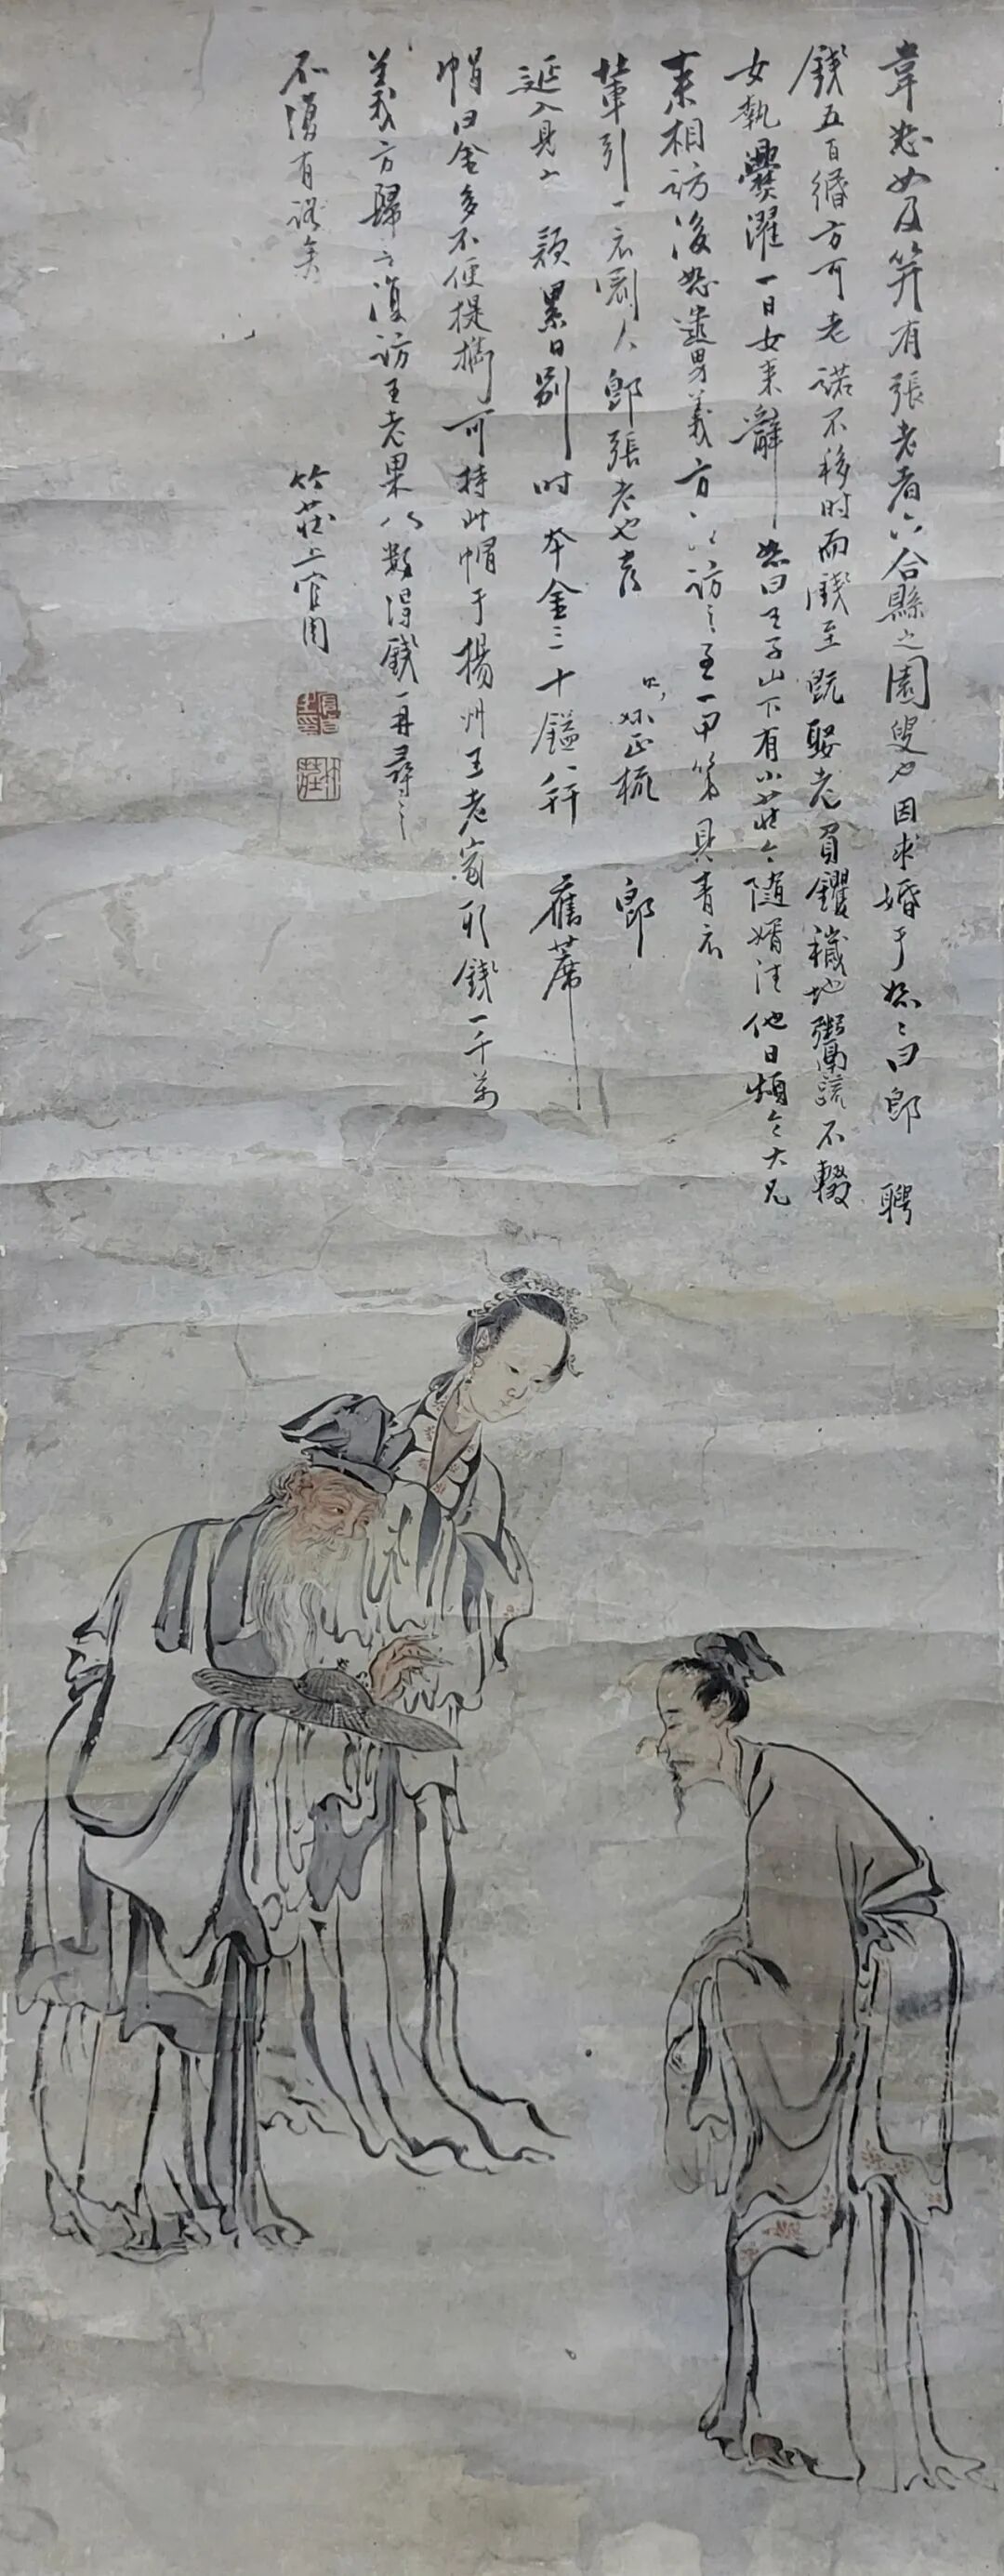 韋恕女及笄有張老者六合縣之園叟也因求婚于恕〻曰郎聘
錢五百緡方可老諾不移時而錢至既娶老負钁穢地鬻蔬不輟
女執爨濯一日女來辭恕曰王子山下有小莊今随婿住他日煩令大兄
來相訪後恕遣男義方訪之至一甲第見青衣
輩引一衣人郎張老也妹正梳
延入見累日別時奉金二十鎰舊蓆
帽曰金多不便提攜可持此帽于楊州王老家取錢一千萬
義方歸復訪王老果以數得錢再尋之
不復有路矣
竹莊上官周
竹莊